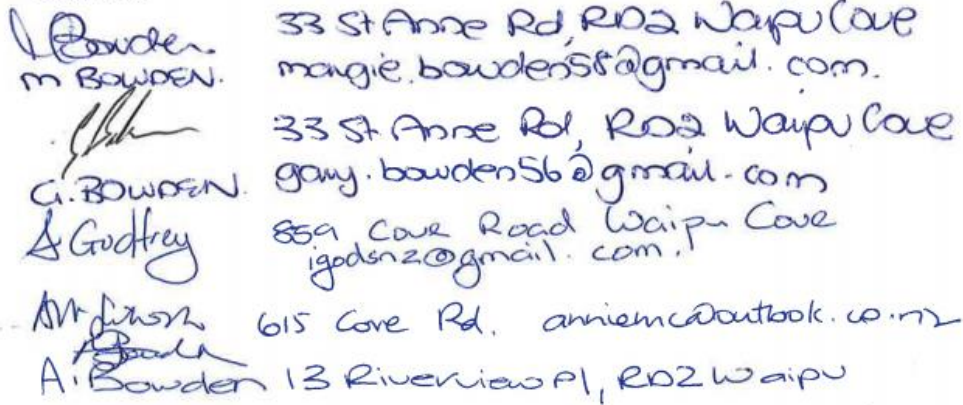 Bowden. 33 St Anne Rd, RD2 Waipu Cove
M BOWDEN. margie.bowden58@gmail.com.
33 St Anne Rd, RD2 Waipu Cove
G. BOWDEN. gary.bowden56@gmail.com
A Godfrey 859 Cove Road Waipu Cove
igodsnz@gmail.com.
615 Cove Rd. anniemc@outlook.co.nz
A. Bowden 13 Riverview Pl, RD2 Waipu